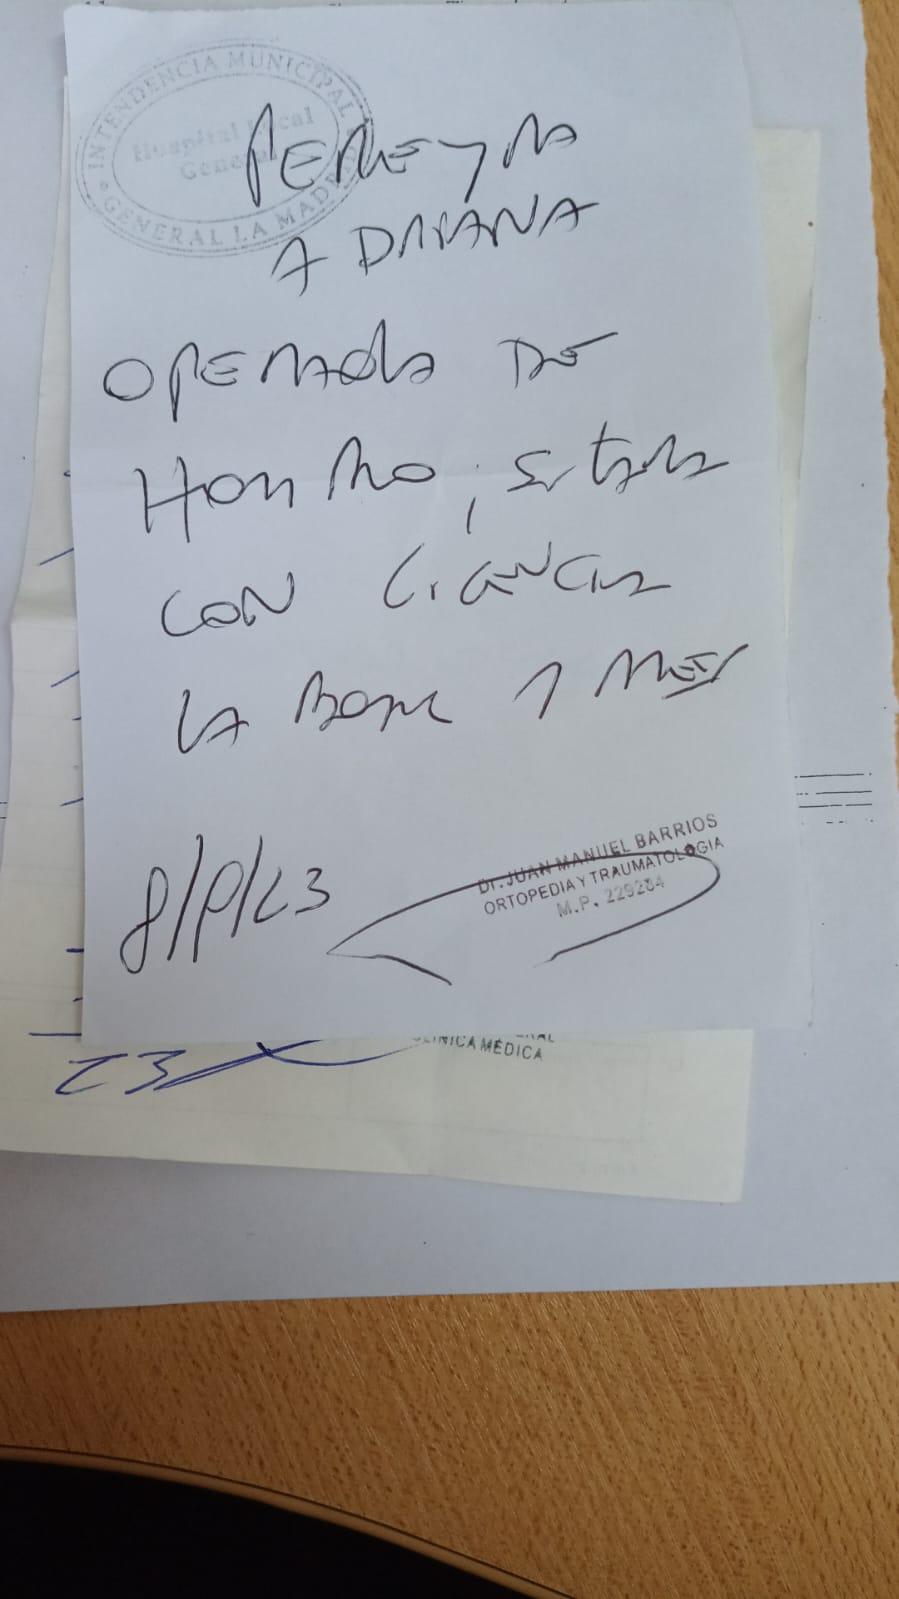 INTENDENCIA MUNICIPAL
Hospital Local
General
GENERAL LA MADRID
PEREYRA
A DAIANA
OPERADA DE
HOMBRO,
CON
LA 1 MES
8/8/23
Dr. JUAN MANUEL BARRIOS
ORTOPEDIA Y TRAUMATOLOGIA
M.P. 229284
23
CLINICA MÉDICA